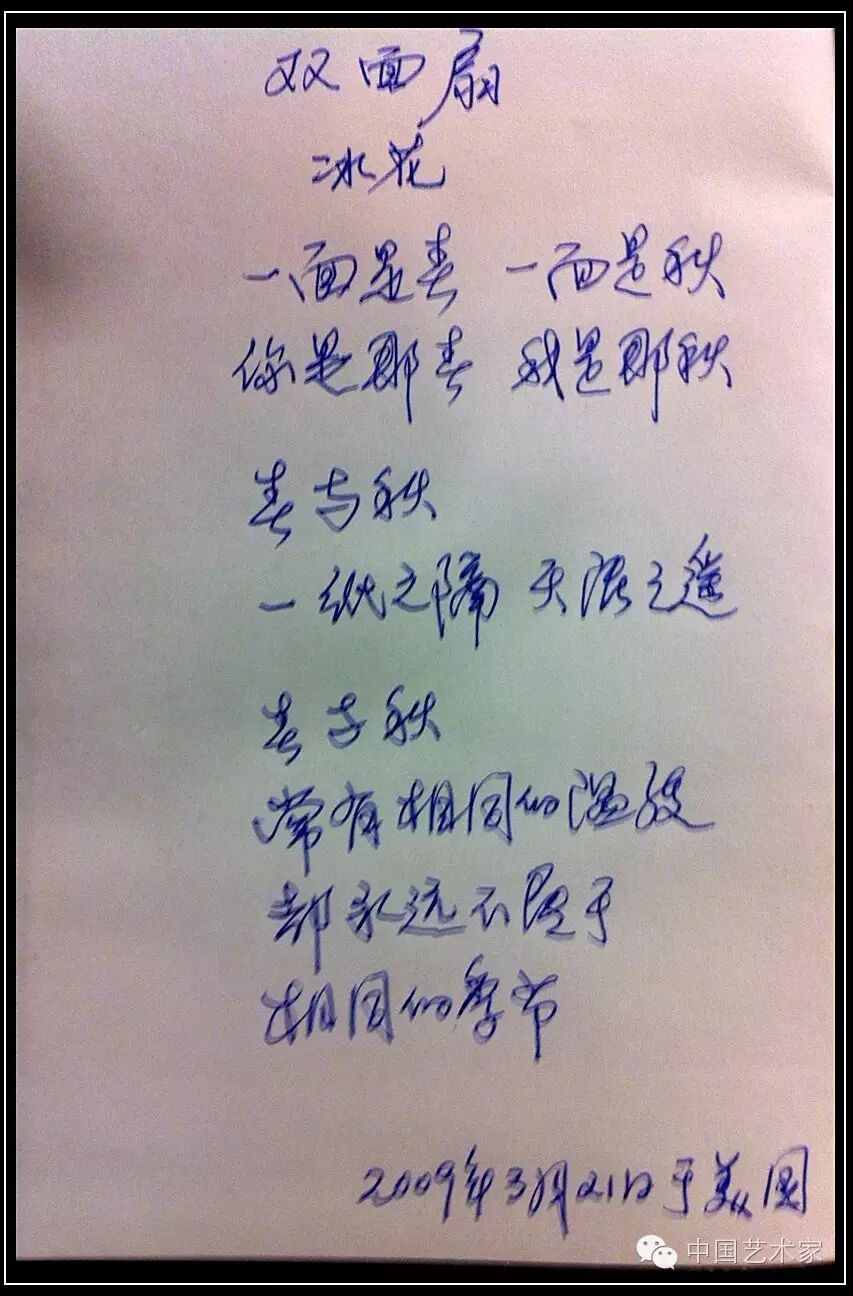 双面扇
冰花
一面是春 一面是秋
你是那春 我是那秋
春与秋
一纸之隔 天涯之遥
春与秋
常有相同的温度
却永远不属于
相同的季节
2009年3月21日于美国
中国艺术家